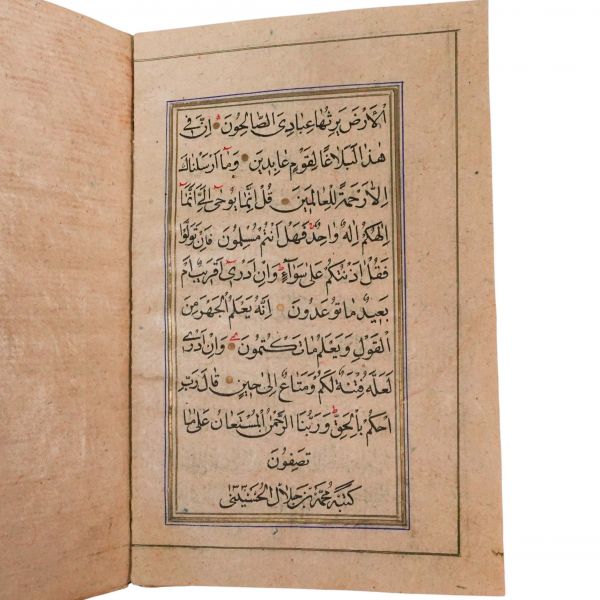 الْأَرْضَ يَرِثُهَا عِبَادِيَ الصَّالِحُونَ إِنَّ فِي
هٰذَا لَبَلَاغًا لِقَوْمٍ عَابِدِينَ وَمَا أَرْسَلْنَاكَ
إِلَّا رَحْمَةً لِلْعَالَمِينَ قُلْ إِنَّمَا يُوحَى إِلَيَّ أَنَّمَا
إِلٰهُكُمْ إِلٰهٌ وَاحِدٌ فَهَلْ أَنْتُمْ مُسْلِمُونَ فَإِنْ تَوَلَّوْا
فَقُلْ آذَنْتُكُمْ عَلَى سَوَاءٍ وَإِنْ أَدْرِي أَقَرِيبٌ أَمْ
بَعِيدٌ مَا تُوعَدُونَ إِنَّهُ يَعْلَمُ الْجَهْرَ مِنَ
الْقَوْلِ وَيَعْلَمُ مَا تَكْتُمُونَ وَإِنْ أَدْرِي
لَعَلَّهُ فِتْنَةٌ لَكُمْ وَمَتَاعٌ إِلَى حِينٍ قَالَ رَبِّ
احْكُمْ بِالْحَقِّ وَرَبُّنَا الرَّحْمٰنُ الْمُسْتَعَانُ عَلَى مَا
تَصِفُونَ
كتبه محمد بن جلال الحسيني